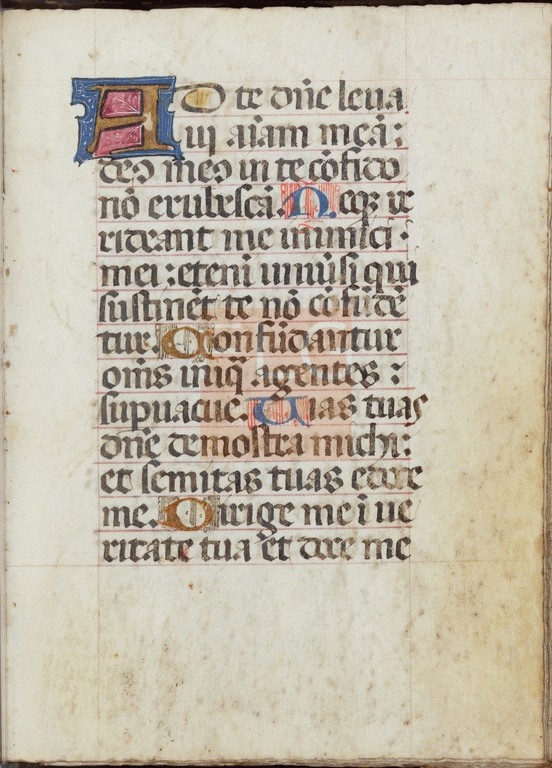 AD te dn̄e leua
ui aīam meā:
deꝰ meꝰ in te cōfido
nō erubescā. Neqꝫ ir
rideant me inimici
mei: etenī uniūsi qui
sustinēt te nō cōfūdē
tur. Confūdantur
om̄s iniq̄ agentes:
supuacue. Uias tuas
dn̄e demōstra michi:
et semitas tuas edoce
me. Dirige me ī ue
ritate tua et doce me